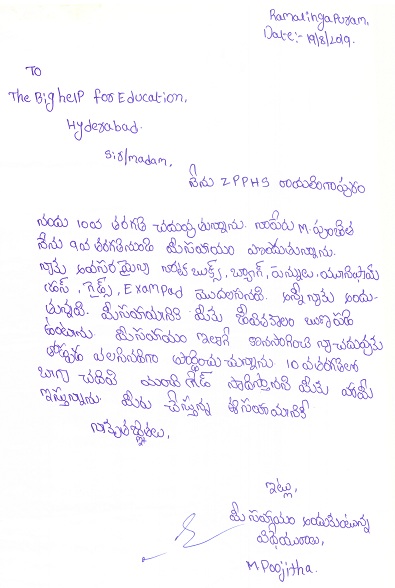 Ramalingapuram,
Date:- 19/8/2019.
TO
The Big help for Education,
Hyderabad.
Sir/madam,
నేను ZPPHS రామలింగాపురం
నందు 10వ తరగతి చదువుతున్నాను. నాపేరు M. పూజిత
నేను 9వ తరగతినుండి మీసహాయం పొందుతున్నాను.
నాకు అవసరమైన నోట్ బుక్స్, బ్యాగ్, పెన్నులు, యూనిఫామ్
గైడ్స్, Exampad మొదలగునవి. అన్నీ నాకు అందు-
తున్నవి. మీసహాయానికి మీకు జీవితకాలం ఋణపడి
ఉంటాను. మీ సహాయం ఇలాగే కొనసాగించి నా చదువుకు
వలసినదిగా ప్రార్థించుచున్నాను 10వ తరగతిలో
బాగా చదివి మంచి గ్రేడ్ సాధిస్తానని మీకు హామీ
ఇస్తున్నాను. మీరు చేస్తున్న ఈసహాయానికి
నా కృతజ్ఞతలు,
ఇట్లు,
మీ సహాయం అందుకుంటున్న
విద్యార్థిని,
M. Poojitha.